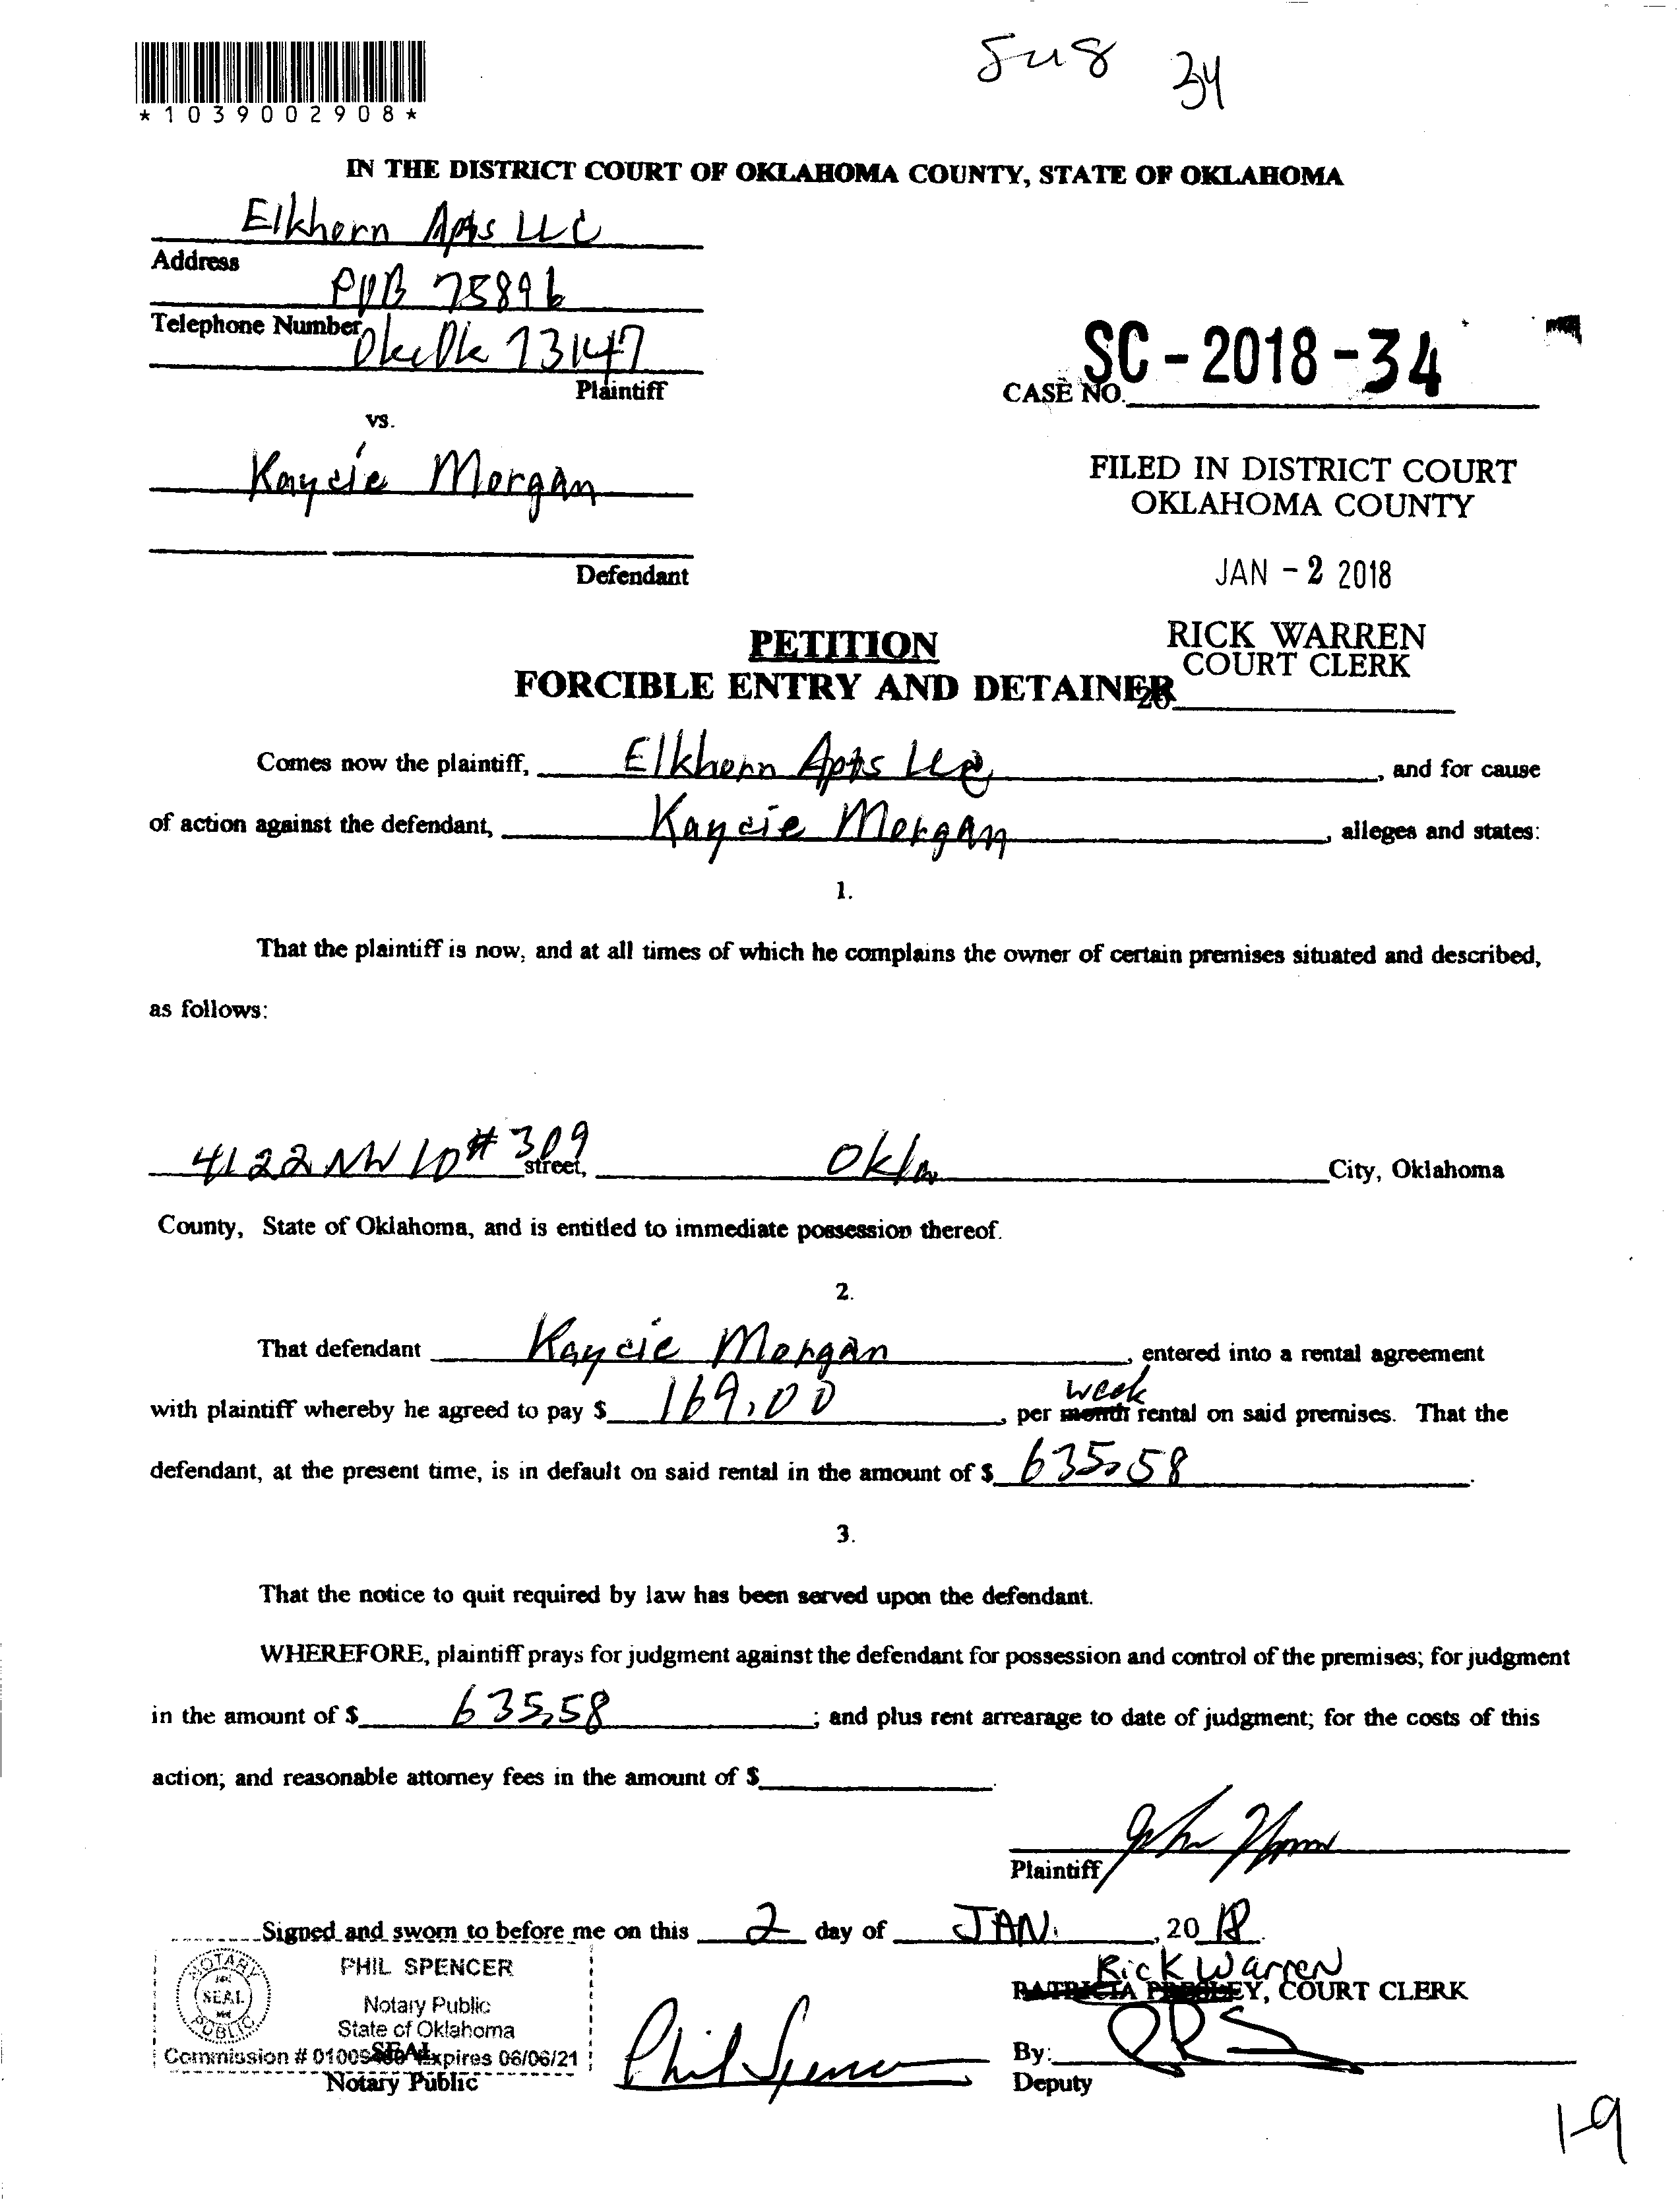 34
*1039002908*
IN THE DISTRICT COURT OF OKLAHOMA COUNTY, STATE OF OKLAHOMA
Elkhorn Apts LLC
Address
POB 75896
Telephone Number
Okc Ok 73147
Plaintiff
SC-2018-34
CASE NO.
vs.
Kaycie Morgan
FILED IN DISTRICT COURT
OKLAHOMA COUNTY
Defendant
JAN - 2 2018
PETITION
RICK WARREN
COURT CLERK
FORCIBLE ENTRY AND DETAINER
20
Comes now the plaintiff, Elkhorn Apts LLC, and for cause
of action against the defendant, Kaycie Morgan, alleges and states:
1.
That the plaintiff is now, and at all times of which he complains the owner of certain premises situated and described,
as follows:
4122 NW 10 # 309 street, Okla City, Oklahoma
County, State of Oklahoma, and is entitled to immediate possession thereof.
2.
That defendant Kaycie Morgan, entered into a rental agreement
with plaintiff whereby he agreed to pay $ 169.00, per month week rental on said premises. That the
defendant, at the present time, is in default on said rental in the amount of $ 635.58.
3.
That the notice to quit required by law has been served upon the defendant.
WHEREFORE, plaintiff prays for judgment against the defendant for possession and control of the premises; for judgment
in the amount of $ 635.58; and plus rent arrearage to date of judgment; for the costs of this
action; and reasonable attorney fees in the amount of $
Plaintiff John
Signed and sworn to before me on this 2 day of JAN., 2018.
NOTARY PUBLIC SEAL
PHIL SPENCER
Notary Public
State of Oklahoma
Commission # Expires 06/06/21
SEAL
Notary Public
Phil Spencer
Rick Warren
PATRICIA PRESLEY, COURT CLERK
By:
Deputy
1-9